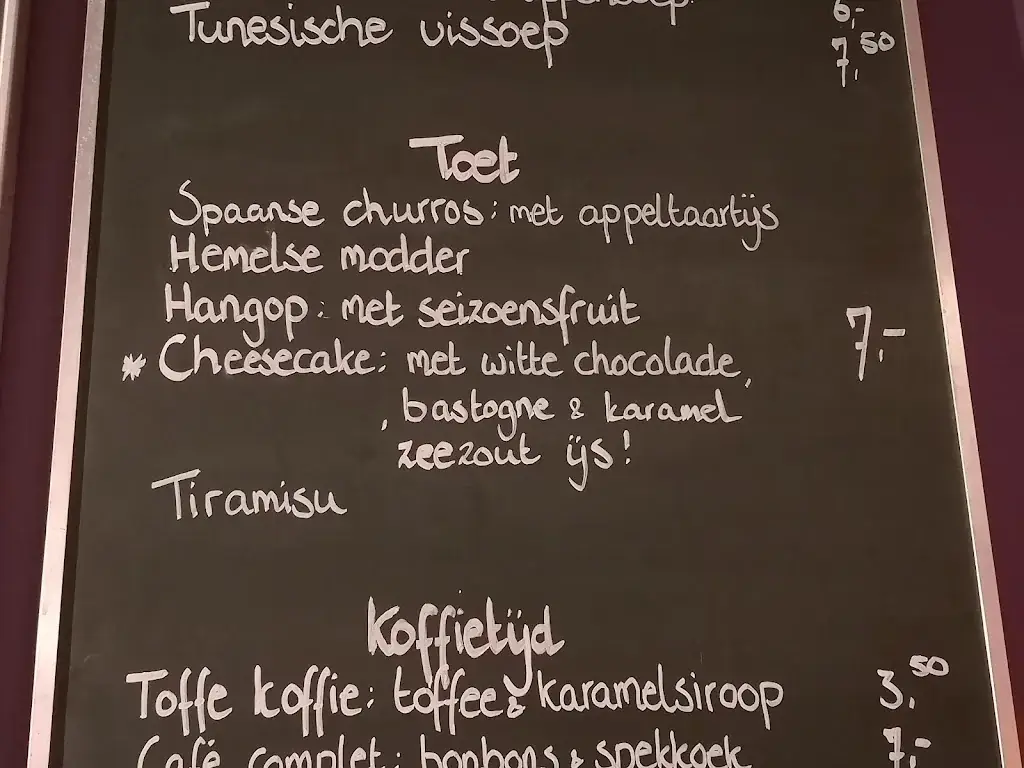 6,-
Tunesische vissoep 7,50
Toet
Spaanse churros: met appeltaartijs
Hemelse modder
Hangop: met seizoensfruit
7,-
* Cheesecake: met witte chocolade,
, bastogne & karamel
zeezout ijs!
Tiramisu
Koffietijd
Toffe koffie: toffee & karamelsiroop 3,50
Café complet: bonbons & spekkoek 7,-